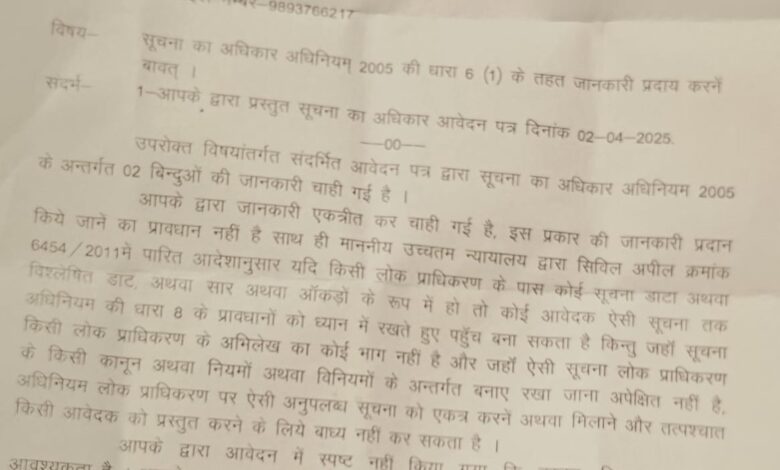 नम्बर-9893766217
विषय-
सूचना का अधिकार अधिनियम् 2005 की धारा 6 (1) के तहत जानकारी प्रदाय करनें
बावत् ।
संदर्भ-
1-आपके द्वारा प्रस्तुत सूचना का अधिकार आवेदन पत्र दिनांक 02-04-2025.
---00---
उपरोक्त विषयांतर्गत संदर्भित आवेदन पत्र द्वारा सूचना का अधिकार अधिनियम 2005
के अन्तर्गत 02 बिन्दुओं की जानकारी चाही गई है ।
आपके द्वारा जानकारी एकत्रीत कर चाही गई है, इस प्रकार की जानकारी प्रदान
किये जानें का प्रावधान नहीं है साथ ही माननीय उच्चतम न्यायालय द्वारा सिविल अपील क्रमांक
6454/2011में पारित आदेशानुसार यदि किसी लोक प्राधिकरण के पास कोई सूचना डाटा अथवा
विश्लेषित डाट, अथवा सार अथवा ऑकड़ों के रूप में हो तो कोई आवेदक ऐसी सूचना तक
अधिनियम की धारा 8 के प्रावधानों को ध्यान में रखते हुए पहुँच बना सकता है किन्तु जहाँ सूचना
किसी लोक प्राधिकरण के अभिलेख का कोई भाग नहीं है और जहाँ ऐसी सूचना लोक प्राधिकरण
के किसी कानून अथवा नियमों अथवा विनियमों के अन्तर्गत बनाए रखा जाना अपेक्षित नहीं है,
अधिनियम लोक प्राधिकरण पर ऐसी अनुपलब्ध सूचना को एकत्र करनें अथवा मिलाने और तत्पश्चात
किसी आवेदक को प्रस्तुत करने के लिये बाध्य नहीं कर सकता है ।
आपके द्वारा आवेदन में स्पष्ट नहीं किया गया कि
आवश्यकता है